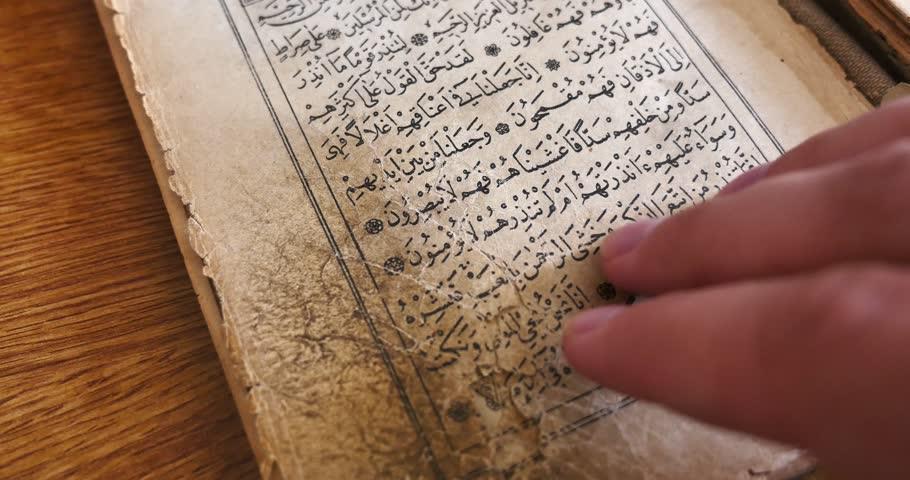 عَلٰى صِرَاطٍ
الْعَزِيزِ الرَّحِيمِ ۝ لِتُنْذِرَ قَوْمًا مَا اُنْذِرَ
فَهُمْ غَافِلُونَ ۝ لَقَدْ حَقَّ الْقَوْلُ عَلٰى اَكْثَرِهِمْ
فَهُمْ لَا يُؤْمِنُونَ ۝ اِنَّا جَعَلْنَا فِى اَعْنَاقِهِمْ اَغْلَالًا فَهِىَ
اِلَى الْاَذْقَانِ فَهُمْ مُقْمَحُونَ ۝ وَجَعَلْنَا مِنْ بَيْنِ اَيْدِيهِمْ
سَدًّا وَمِنْ خَلْفِهِمْ سَدًّا فَاَغْشَيْنَاهُمْ فَهُمْ لَا يُبْصِرُونَ ۝
وَسَوَاءٌ عَلَيْهِمْ ءَاَنْذَرْتَهُمْ اَمْ لَمْ تُنْذِرْهُمْ لَا يُؤْمِنُونَ ۝
مَنِ اتَّبَعَ الذِّكْرَ وَخَشِىَ الرَّحْمٰنَ بِالْغَيْبِ فَبَشِّرْهُ
۝ اِنَّا نَحْنُ نُحْيِى الْمَوْتٰى وَنَكْتُبُ